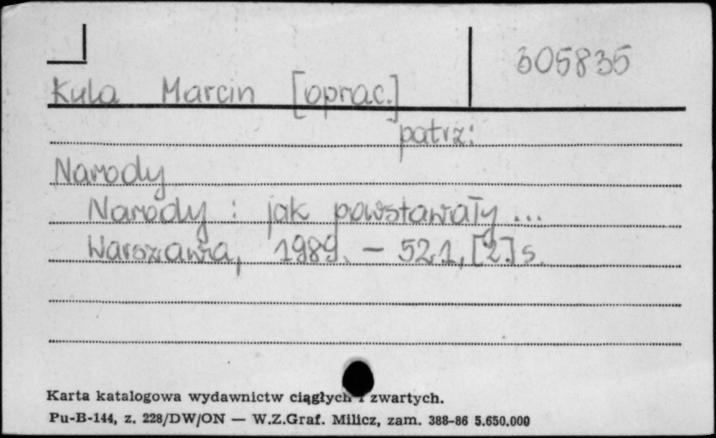 305835
Kula Marcin [oprac.]
patrz:
Narody
Narody : jak powstawały ...
Warszawa, 1989. — 521, [2] s.
Karta katalogowa wydawnictw ciągłych i zwartych.
Pu-B-144, z. 228/DW/ON — W.Z.Graf. Milicz, zam. 388-86 5.650.000